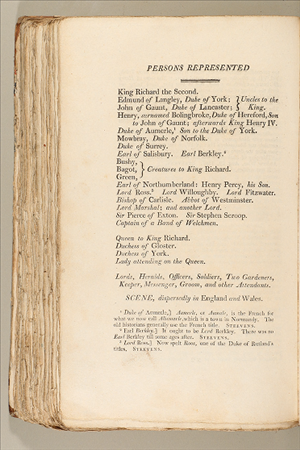 PERSONS REPRESENTED
King Richard the Second.
Edmund of Langley, Duke of York; } Uncles to the
John of Gaunt, Duke of Lancaster; } King.
Henry, surnamed Bolingbroke, Duke of Hereford, Son
to John of Gaunt; afterwards King Henry IV.
Duke of Aumerle,¹ Son to the Duke of York.
Mowbray, Duke of Norfolk.
Duke of Surrey.
Earl of Salisbury. Earl Berkley.²
Bushy,
Bagot, } Creatures to King Richard.
Green,
Earl of Northumberland: Henry Percy, his Son.
Lord Ross.³ Lord Willoughby. Lord Fitzwater.
Bishop of Carlisle. Abbot of Westminster.
Lord Marshal; and another Lord.
Sir Pierce of Exton. Sir Stephen Scroop.
Captain of a Band of Welchmen.
Queen to King Richard.
Duchess of Gloster.
Duchess of York.
Lady attending on the Queen.
Lords, Heralds, Officers, Soldiers, Two Gardeners,
Keeper, Messenger, Groom, and other Attendants.
SCENE, dispersedly in England and Wales.
¹ Duke of Aumerle,] Aumerle, or Aumale, is the French for
what we now call Albemarle, which is a town in Normandy. The
old historians generally use the French title. STEEVENS.
² Earl Berkley.] It ought to be Lord Berkley. There was no
Earl Berkley till some ages after. STEEVENS.
³ Lord Ross.] Now spelt Roos, one of the Duke of Rutland's
titles. STEEVENS.